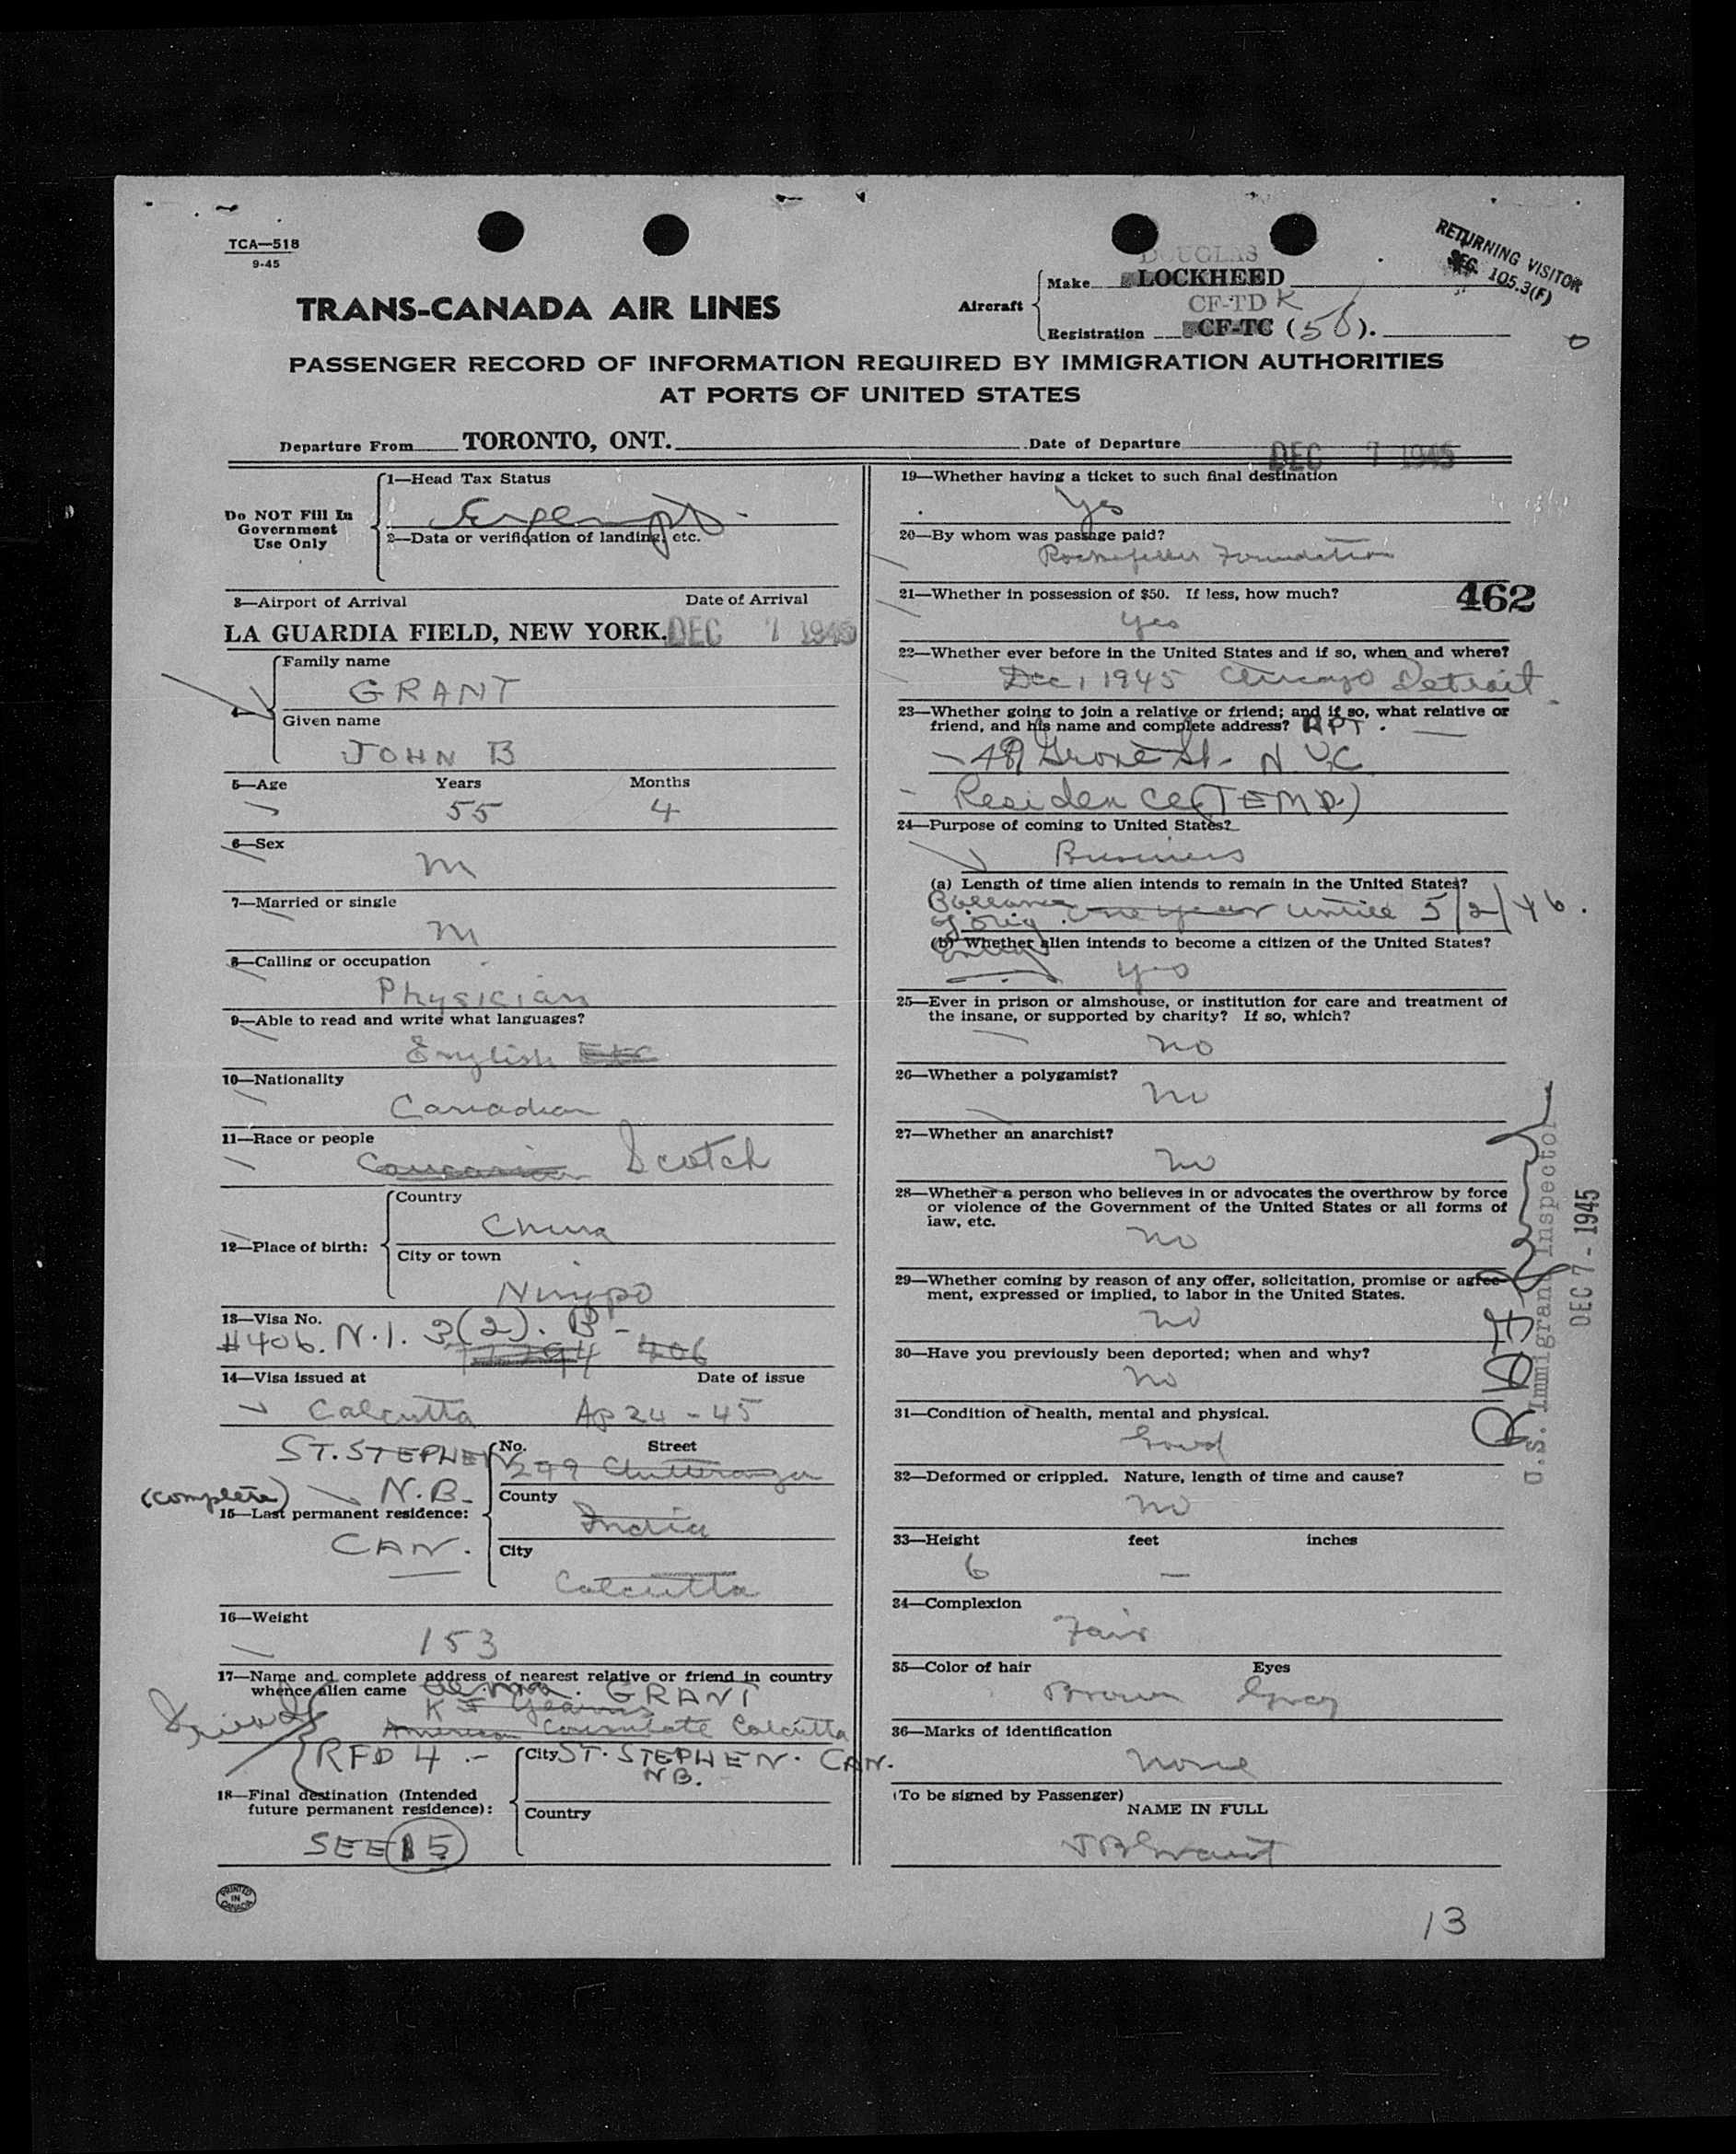 TCA—518
9-45
RETURNING VISITOR
SEC. 105.3(F)
DOUGLAS
Aircraft
Make LOCKHEED
CF-TDK
Registration CF-TC (56).
TRANS-CANADA AIR LINES
PASSENGER RECORD OF INFORMATION REQUIRED BY IMMIGRATION AUTHORITIES
AT PORTS OF UNITED STATES
Departure From TORONTO, ONT. Date of Departure DEC 7 1945
Do NOT Fill In
Government
Use Only
1—Head Tax Status
Exempt.
2—Data or verification of landing, etc.
3—Airport of Arrival Date of Arrival
LA GUARDIA FIELD, NEW YORK. DEC 7 1945
4—
Family name
GRANT
Given name
JOHN B
5—Age Years Months
55 4
6—Sex
M
7—Married or single
M
8—Calling or occupation
Physician
9—Able to read and write what languages?
English Etc
10—Nationality
Canadian
11—Race or people
Caucasian Scotch
12—Place of birth:
Country
China
City or town
Ningpo
13—Visa No.
#406. N.I. 3(2). B-
406
14—Visa issued at Date of issue
Calcutta Ap 24-45
ST. STEPHEN
N.B.
(complete)
15—Last permanent residence:
CAN.
No. Street
299
County
India
City
Calcutta
16—Weight
153
17—Name and complete address of nearest relative or friend in country
whence alien came
GRANT
K F
American Consulate Calcutta
Friend
RFD 4.-
City ST. STEPHEN. CAN.
NB.
18—Final destination (Intended
future permanent residence):
Country
SEE 15
PRINTED
IN
CANADA
19—Whether having a ticket to such final destination
Yes
20—By whom was passage paid?
Rockefeller Foundation
21—Whether in possession of $50. If less, how much?
462
Yes
22—Whether ever before in the United States and if so, when and where?
Dec 1 1945 Chicago Detroit
23—Whether going to join a relative or friend; and if so, what relative or
friend, and his name and complete address? APT.
Grove St. N.Y.C.
Residence (TEMP.)
24—Purpose of coming to United States?
Business
(a) Length of time alien intends to remain in the United States?
Ballance
of orig. One year untill 5/2/46.
(b) Whether alien intends to become a citizen of the United States?
Entry
yes
25—Ever in prison or almshouse, or institution for care and treatment of
the insane, or supported by charity? If so, which?
no
26—Whether a polygamist?
no
27—Whether an anarchist?
no
28—Whether a person who believes in or advocates the overthrow by force
or violence of the Government of the United States or all forms of
law, etc.
no
29—Whether coming by reason of any offer, solicitation, promise or agree-
ment, expressed or implied, to labor in the United States.
no
30—Have you previously been deported; when and why?
no
31—Condition of health, mental and physical.
Good
32—Deformed or crippled. Nature, length of time and cause?
no
33—Height feet inches
6 —
34—Complexion
Fair
35—Color of hair Eyes
Brown Grey
36—Marks of identification
none
(To be signed by Passenger)
NAME IN FULL
JB Grant
U.S. Immigrant Inspector
DEC 7 - 1945
13